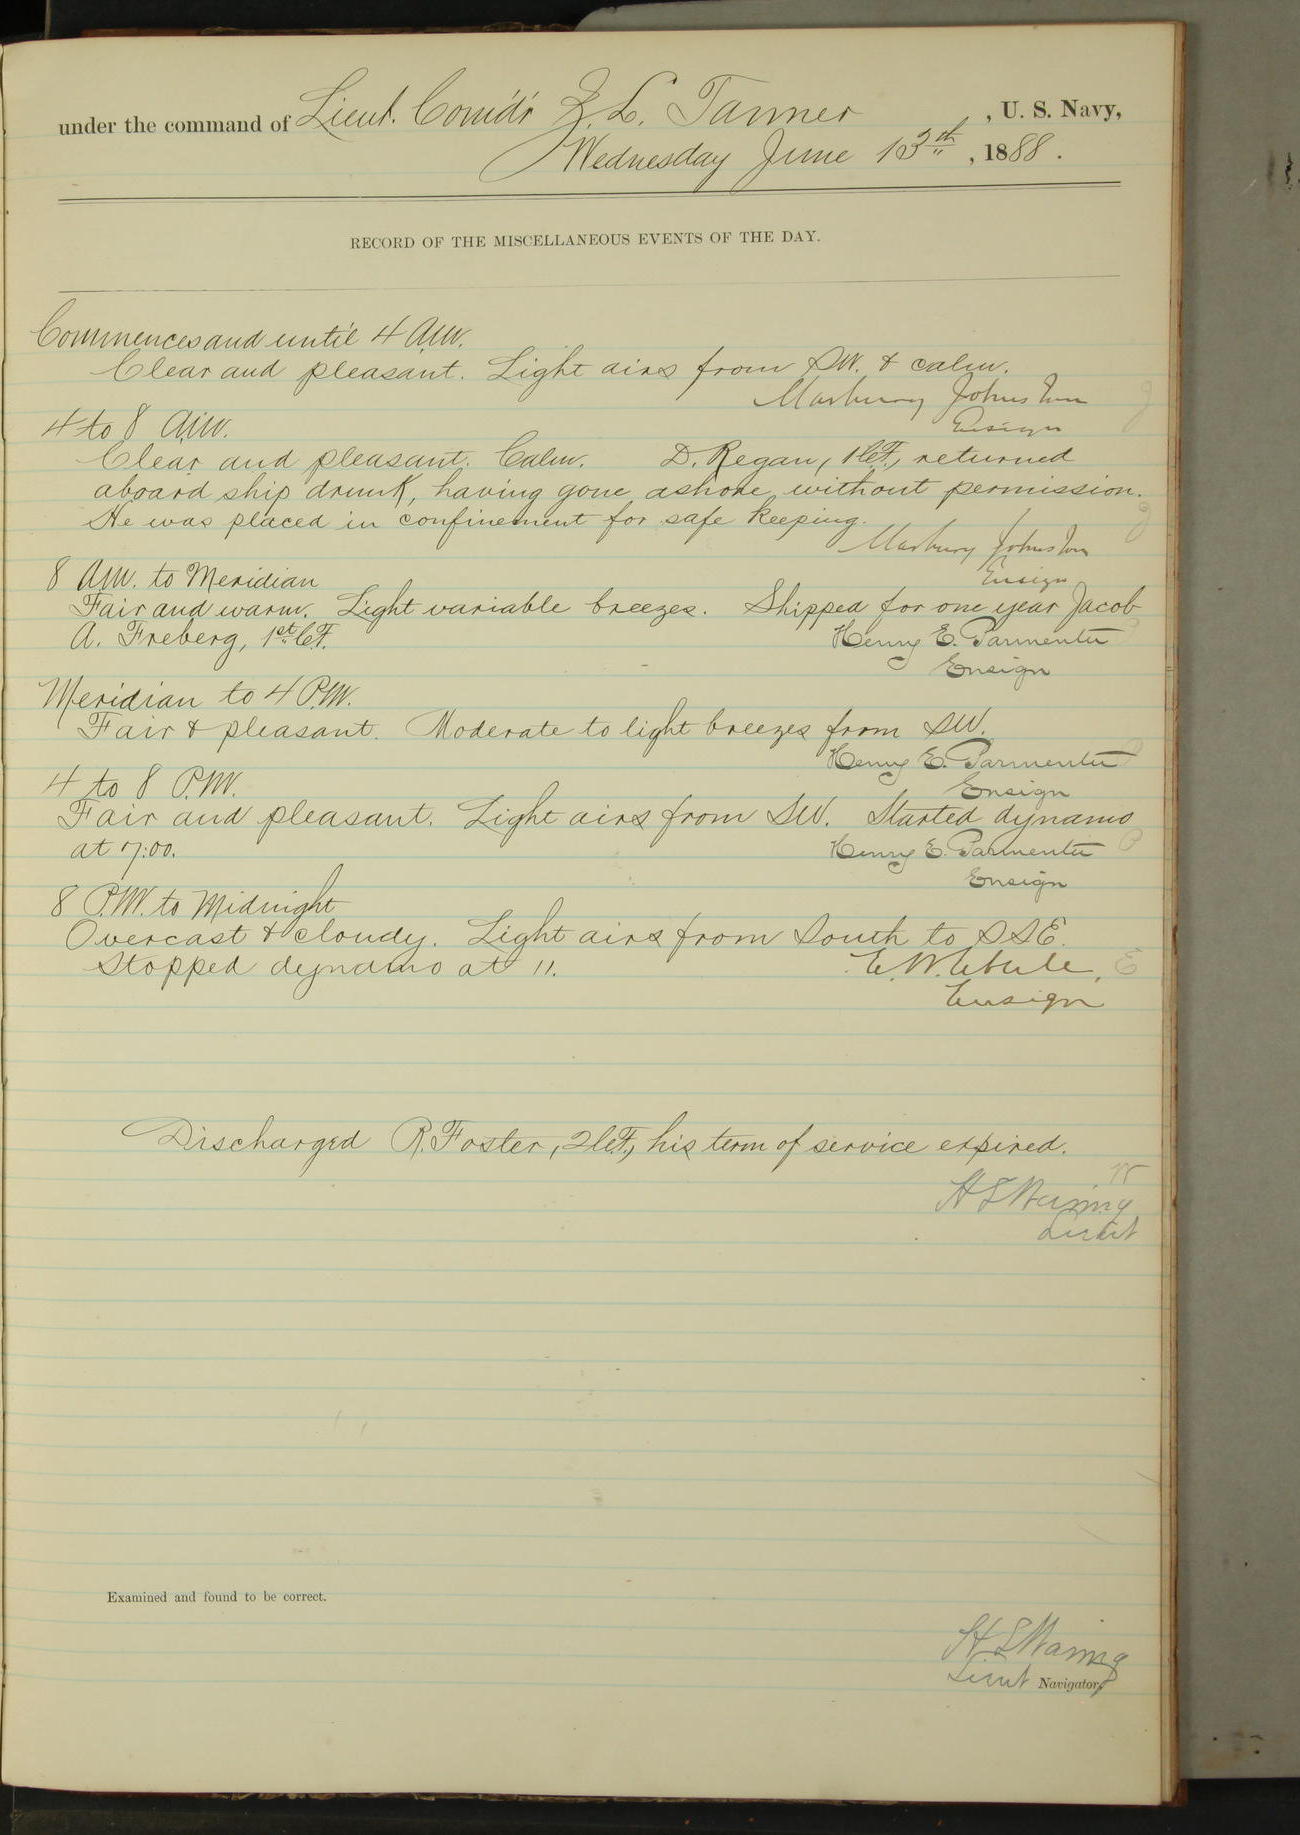 under the command of Lieut. Comd'r Z. L. Tanner, U. S. Navy,
Wednesday June 13th, 1888.
RECORD OF THE MISCELLANEOUS EVENTS OF THE DAY.
Commences and until 4 A.M.
Clear and pleasant. Light airs from SW. & calm.
Marbury Johnston
Ensign
4 to 8 A.M.
Clear and pleasant. Calm. D. Regan, 1 C.F., returned
aboard ship drunk, having gone ashore without permission.
He was placed in confinement for safe keeping.
Marbury Johnston
Ensign
8 A.M. to Meridian
Fair and warm. Light variable breezes. Shipped for one year Jacob
A. Freberg, 1st C.F.
Henry E. Parmenter
Ensign
Meridian to 4 P.M.
Fair & pleasant. Moderate to light breezes from SW.
Henry E. Parmenter
Ensign
4 to 8 P.M.
Fair and pleasant. Light airs from SW. Started dynamo
at 7:00.
Henry E. Parmenter
Ensign
8 P.M. to Midnight
Overcast & cloudy. Light airs from South to SSE.
Stopped dynamo at 11.
E. W. Eberle,
Ensign
Discharged R. Foster, 2 C.F., his term of service expired.
H S Waring
Lieut
Examined and found to be correct.
H S Waring
Lieut Navigator.